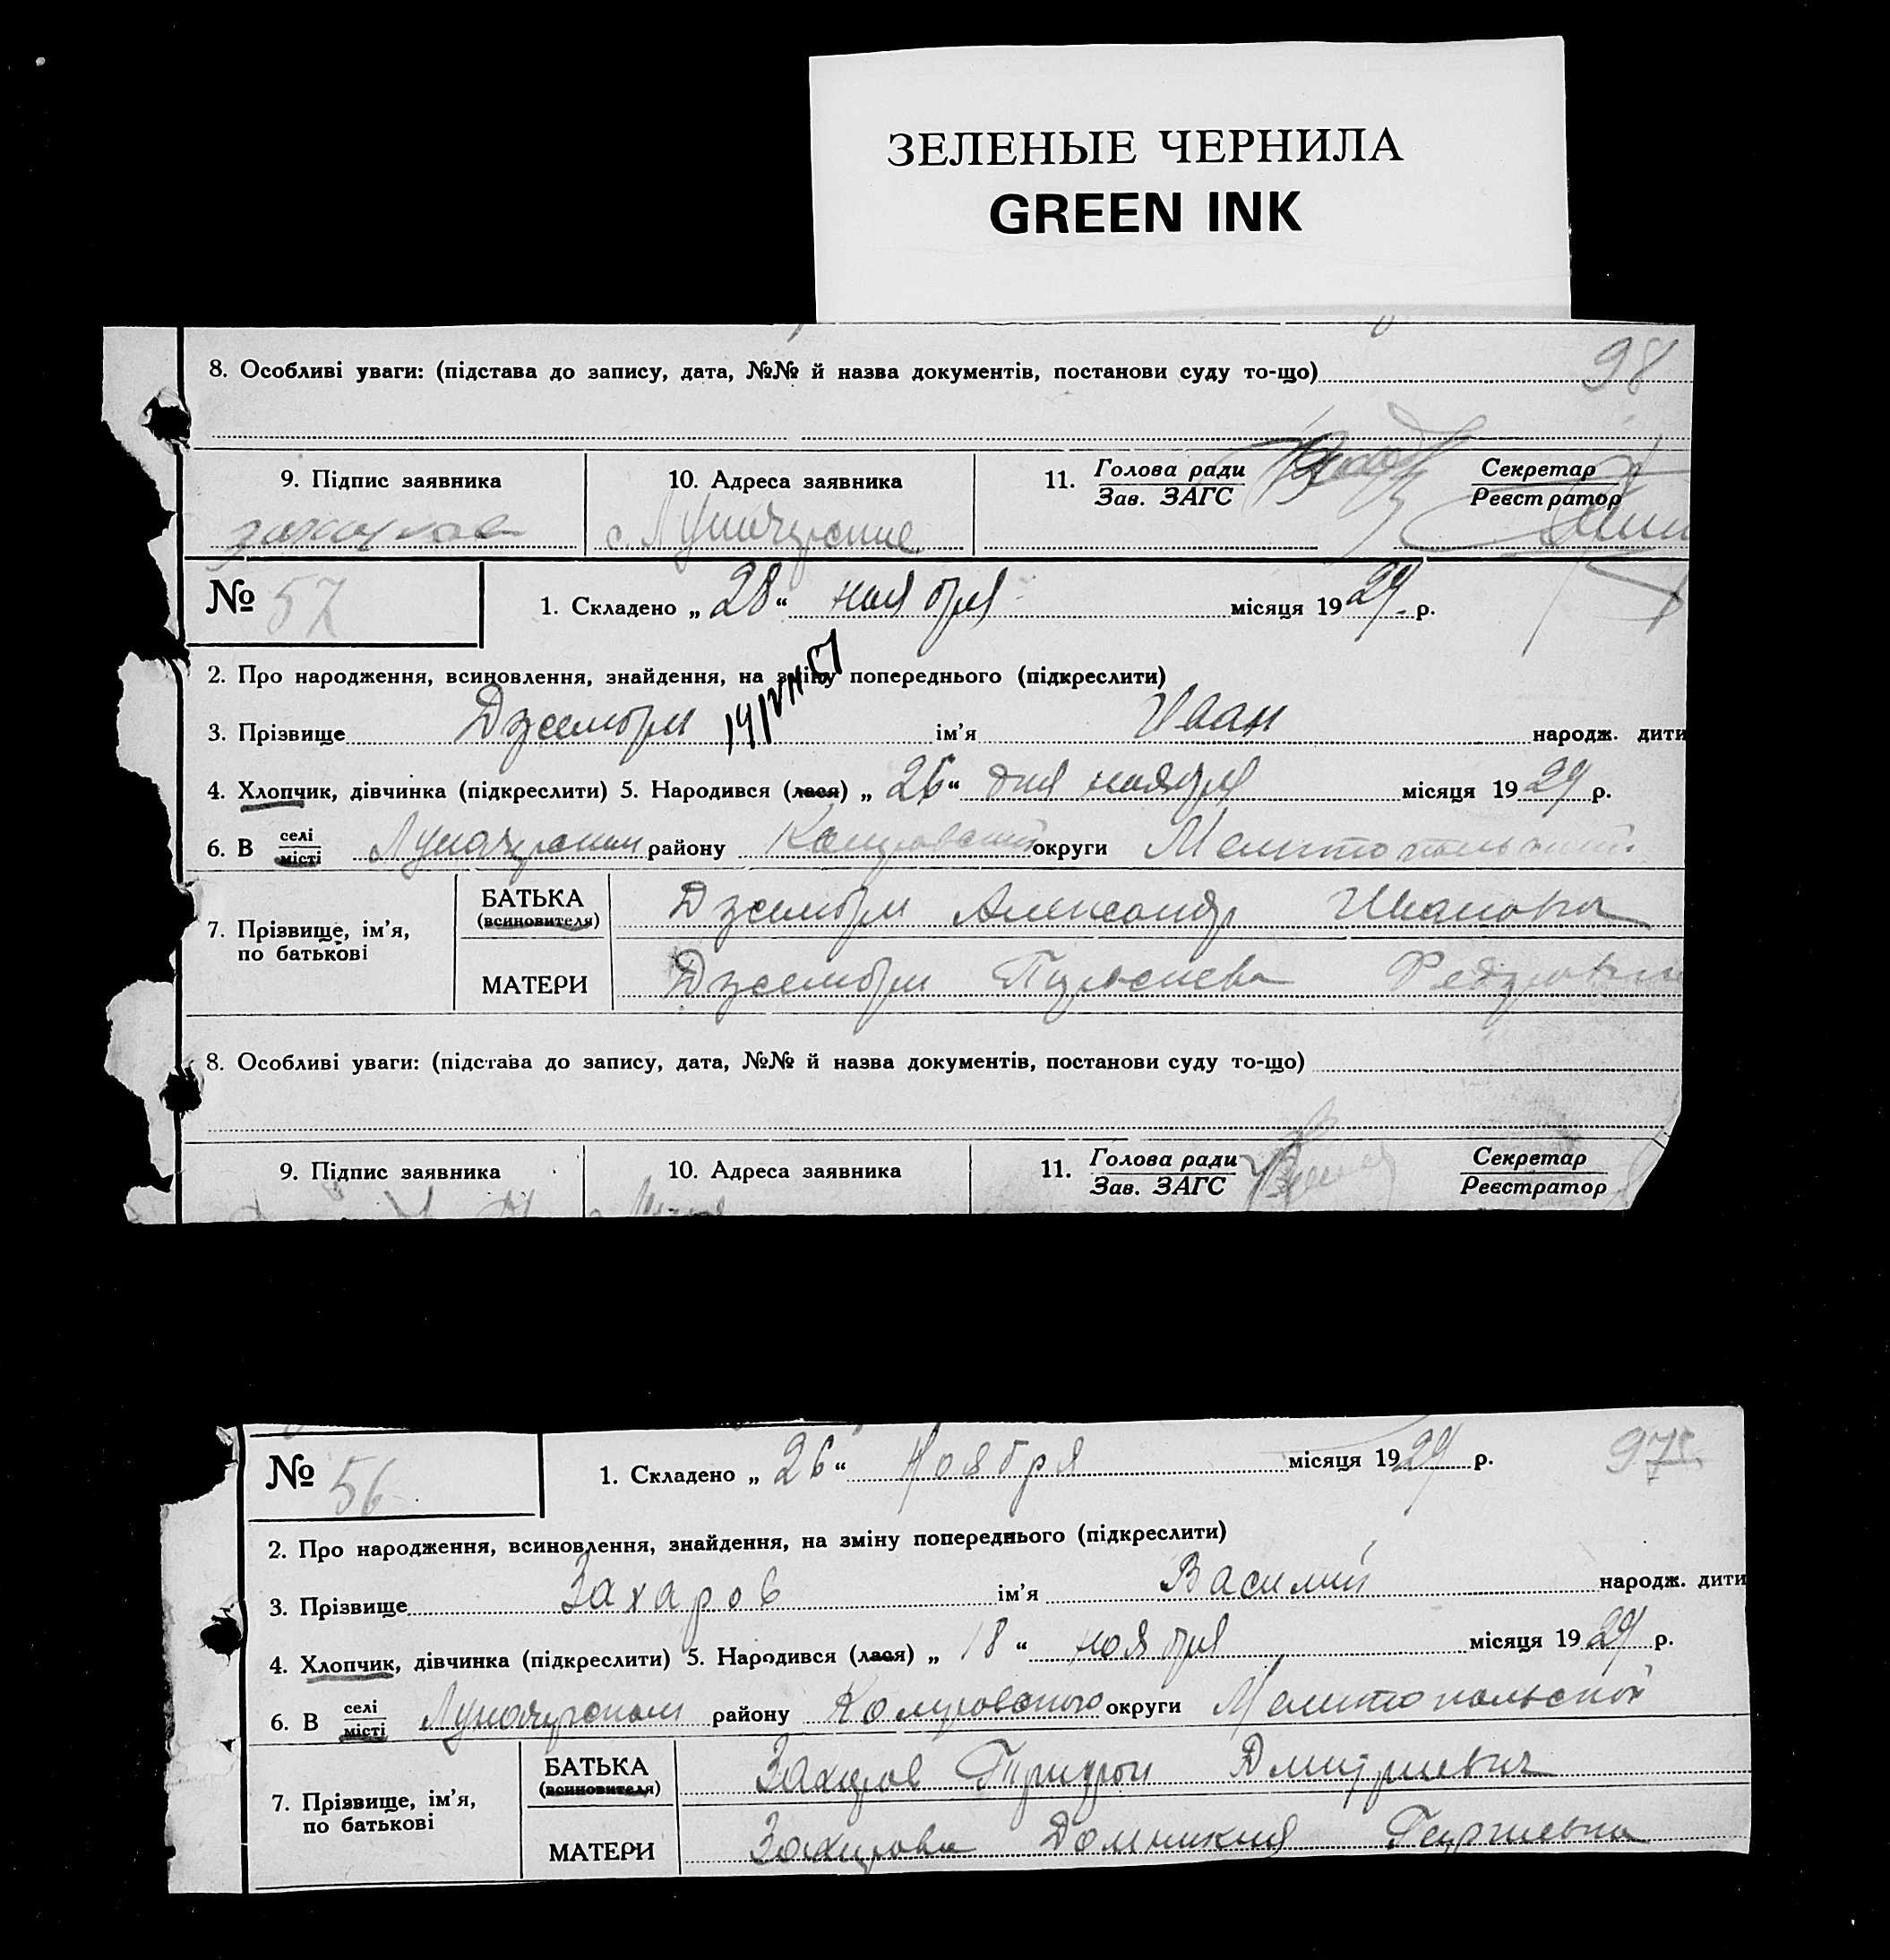 ЗЕЛЕНЫЕ ЧЕРНИЛА
GREEN INK
98
8. Особливі уваги: (підстава до запису, дата, №№ й назва документів, постанови суду то-що)
9. Підпис заявника
10. Адреса заявника
11. Голова ради
Зав. ЗАГС
Секретар
Реєстратор
№ 57
1. Складено „ 28 “ ноября місяця 1929 р.
2. Про народження, всиновлення, знайдення, на зміну попереднього (підкреслити)
3. Прізвище Джембри ім’я Иван народж. дити
4. Хлопчик, дівчинка (підкреслити) 5. Народився (лася) „ 26 “ дня ноября місяця 1929 р.
6. В селі місті району округи Мелитопольский
7. Прізвище, ім’я, по батькові
БАТЬКА (всиновителя) Джембри Александр Иванович
МАТЕРИ Джембри
8. Особливі уваги: (підстава до запису, дата, №№ й назва документів, постанови суду то-що)
9. Підпис заявника
10. Адреса заявника
11. Голова ради
Зав. ЗАГС
Секретар
Реєстратор
№ 56
1. Складено „ 26 “ Ноября місяця 1929 р.
2. Про народження, всиновлення, знайдення, на зміну попереднього (підкреслити)
3. Прізвище Захаров ім’я Василий народж. дити
4. Хлопчик, дівчинка (підкреслити) 5. Народився (лася) „ 18 “ ноября місяця 1929 р.
6. В селі місті району округи Мелитопольской
7. Прізвище, ім’я, по батькові
БАТЬКА (всиновителя) Захаров Дмитриевич
МАТЕРИ Захарова Домникия Георгиевна